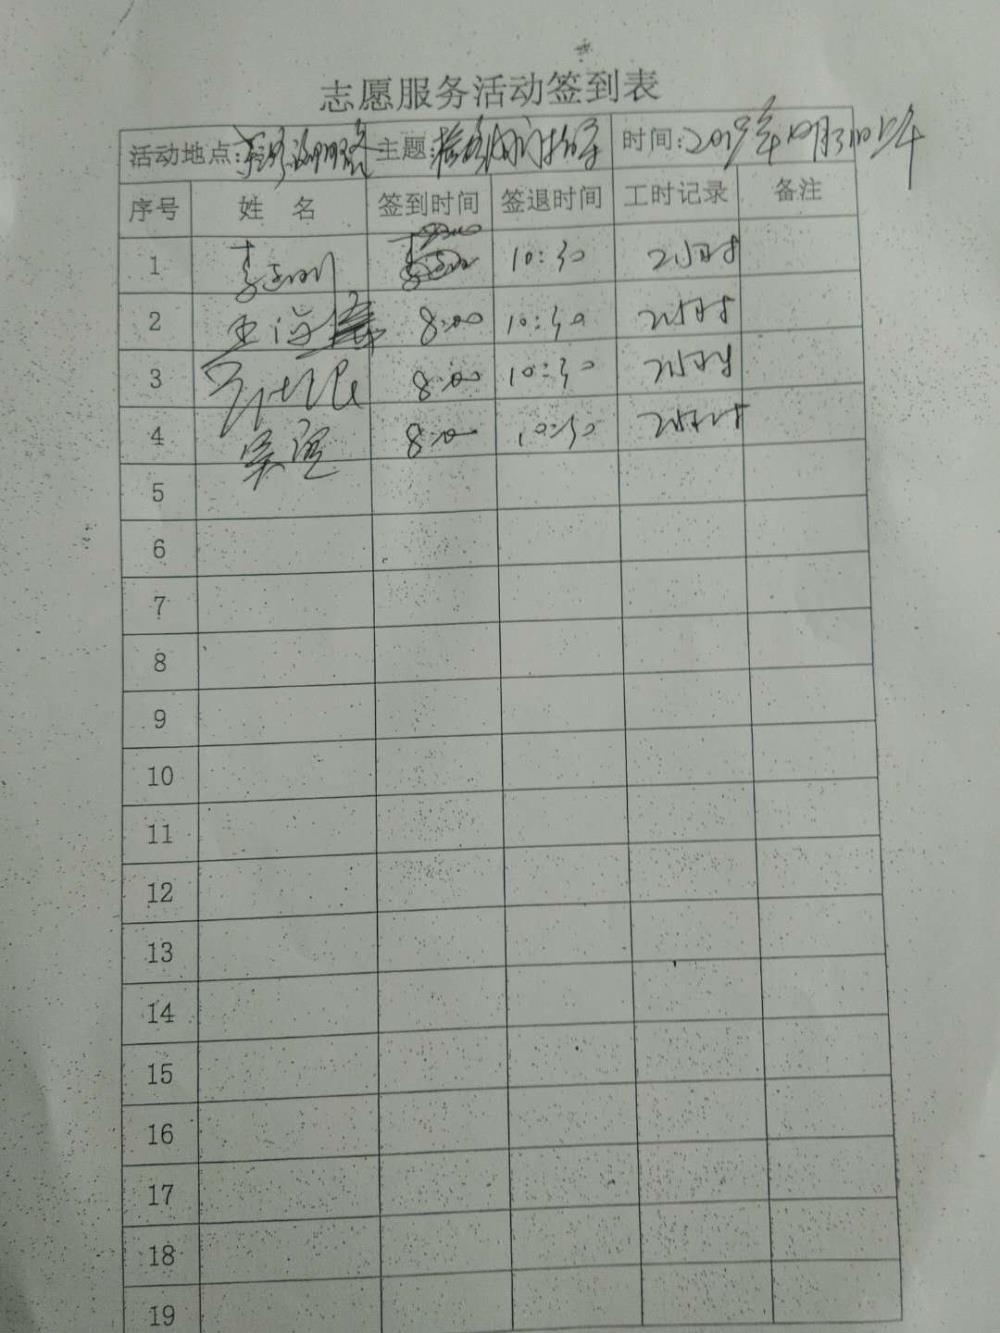 志愿服务活动签到表
活动地点: 主题: 时间:2019年10月31日上午
序号 姓 名 签到时间 签退时间 工时记录 备注
1 李 10:30 2小时
2 王 8:00 10:30 2小时
3 8:00 10:30 2小时
4 吴 8:00 10:30 2小时
5
6
7
8
9
10
11
12
13
14
15
16
17
18
19